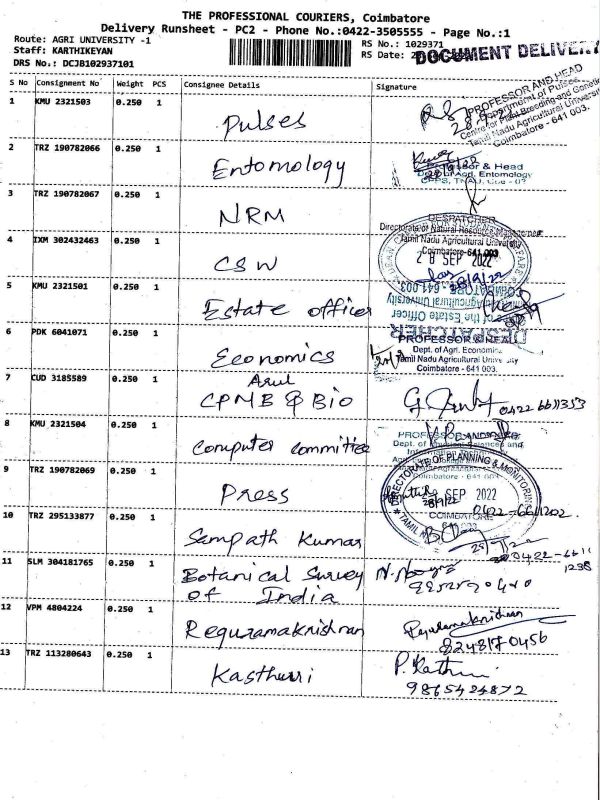 THE PROFESSIONAL COURIERS, Coimbatore
Delivery Runsheet - PC2 - Phone No.:0422-3505555 - Page No.:1
Route: AGRI UNIVERSITY -1
Staff: KARTHIKEYAN
DRS No.: DCJB102937101
RS No.: 1029371
RS Date:
DOCUMENT DELIVERY
S No Consignment No Weight PCS Consignee Details Signature
1 KMU 2321503 0.250 1 Pulses
PROFESSOR AND HEAD
Department of Pulses
Centre for Plant Breeding and Genetics
Tamil Nadu Agricultural University
Coimbatore - 641 003.
2 TRZ 190782066 0.250 1 Entomology
Professor & Head
Dept. of Agrl. Entomology
CPPS, TNAU, Cbe - 03
3 TRZ 190782067 0.250 1 NRM
DESPATCHER
Directorate of Natural Resource Management
Tamil Nadu Agricultural University
Coimbatore-641 003
4 IXM 302432463 0.250 1 CSW
28 SEP 2022
28/9/22
5 KMU 2321501 0.250 1 Estate officer
DESPATCHER
Office of the Estate Officer
Tamil Nadu Agricultural University
COIMBATORE - 641 003
6 PDK 6041071 0.250 1 Economics
PROFESSOR & HEAD
Dept. of Agri. Economics
Tamil Nadu Agricultural University
Coimbatore - 641 003.
7 CUD 3185589 0.250 1 Arul
CPMB & Bio
0422 6611353
8 KMU 2321504 0.250 1 Computer committee
PROFESSOR AND HEAD
Dept. of Physical Sciences and
Information Technology
Coimbatore - 641 003.
9 TRZ 190782069 0.250 1 Press
DIRECTORATE OF PLANNING & MONITORING
SEP 2022
COIMBATORE
641 003
0422-6611202
10 TRZ 295133877 0.250 1 Sampath Kumar
0422-6611
1238
11 SLM 304181765 0.250 1 Botanical Survey
of India
12 VPM 4804224 0.250 1 Reguramakrishnan
Regulamakrishnan
8248170456
13 TRZ 113280643 0.250 1 Kasthurri
9865424872